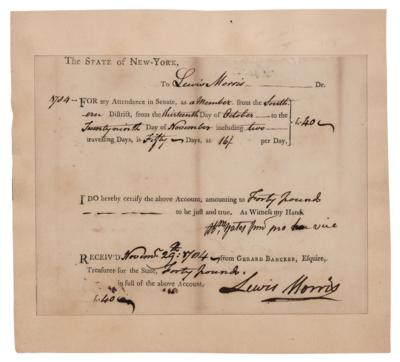 The STATE OF NEW-YORK,
To Lewis Morris Dr.
1784 — FOR my Attendance in Senate, as a Member from the South
ern District, from the thirteenth Day of October — to the
Twenty ninth Day of November including two
travelling Days, is Fifty Days, at 16/ per Day, £40
I DO hereby certify the above Account, amounting to Forty pound
to be just and true. As Witness my Hand.
Abm. Yates Jun pro hac vice
RECEIV'D Novemr. 29th: 1784 from GERARD BANCKER, Esquire,
Treasurer for the State, Forty pounds.
in full of the above Account.
£40 Lewis Morris